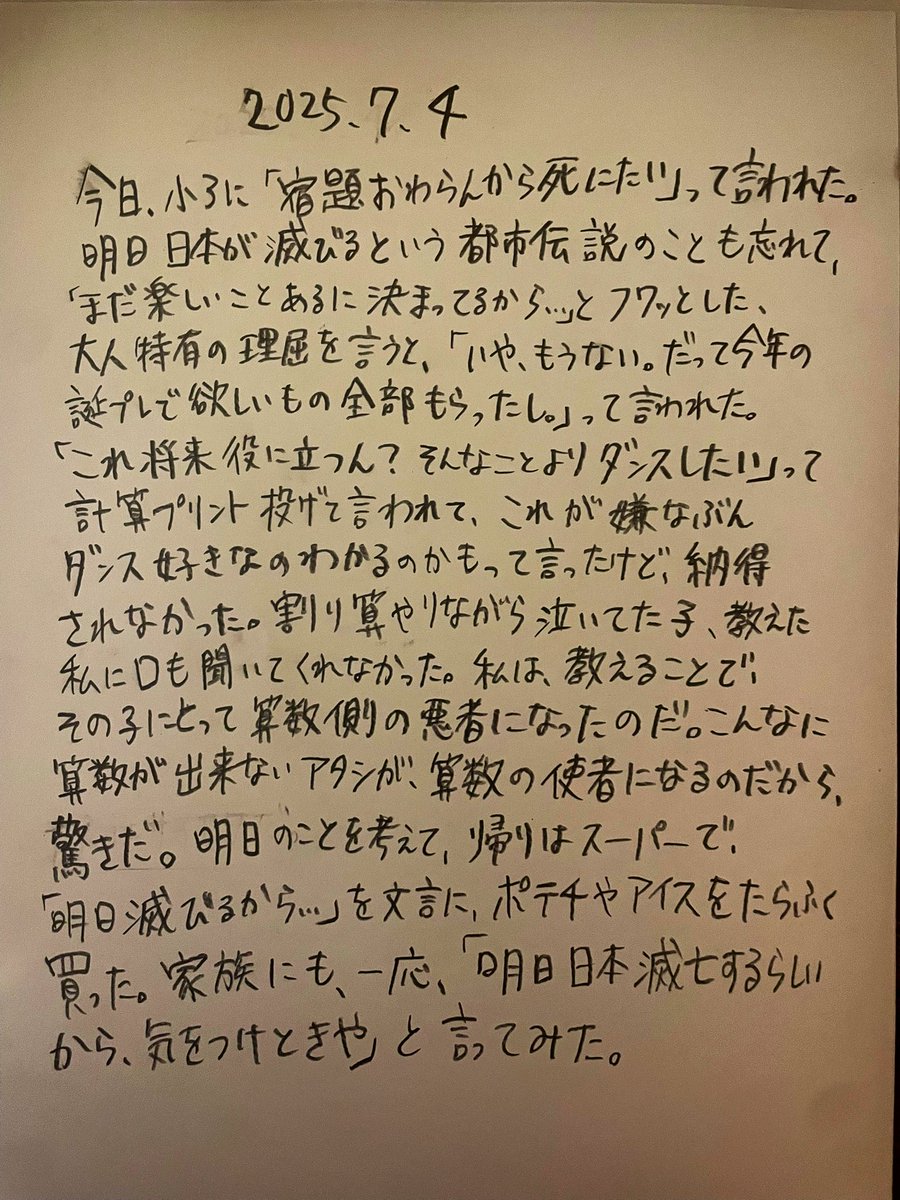 2025.7.4
今日、小3に「宿題おわらんから死にたい」って言われた。
明日日本が滅びるという都市伝説のことも忘れて、
「まだ楽しいことあるに決まってるから…」とフワッとした、
大人特有の理屈を言うと、「いや、もうない。だって今年の
誕プレで欲しいもの全部もらったし。」って言われた。
「これ将来役に立つん？そんなことよりダンスしたい」って
計算プリント投げて言われて、これが嫌なぶん
ダンス好きなのわかるのかもって言ったけど、納得
されなかった。割り算やりながら泣いてた子、教えた
私に口も聞いてくれなかった。私は、教えることで、
その子にとって算数側の悪者になったのだ。こんなに
算数が出来ないアタシが、算数の使者になるのだから、
驚きだ。明日のことを考えて、帰りはスーパーで、
「明日滅びるから…」を文言に、ポテチやアイスをたらふく
買った。家族にも、一応、「明日日本滅亡するらしい
から、気をつけときや」と言ってみた。